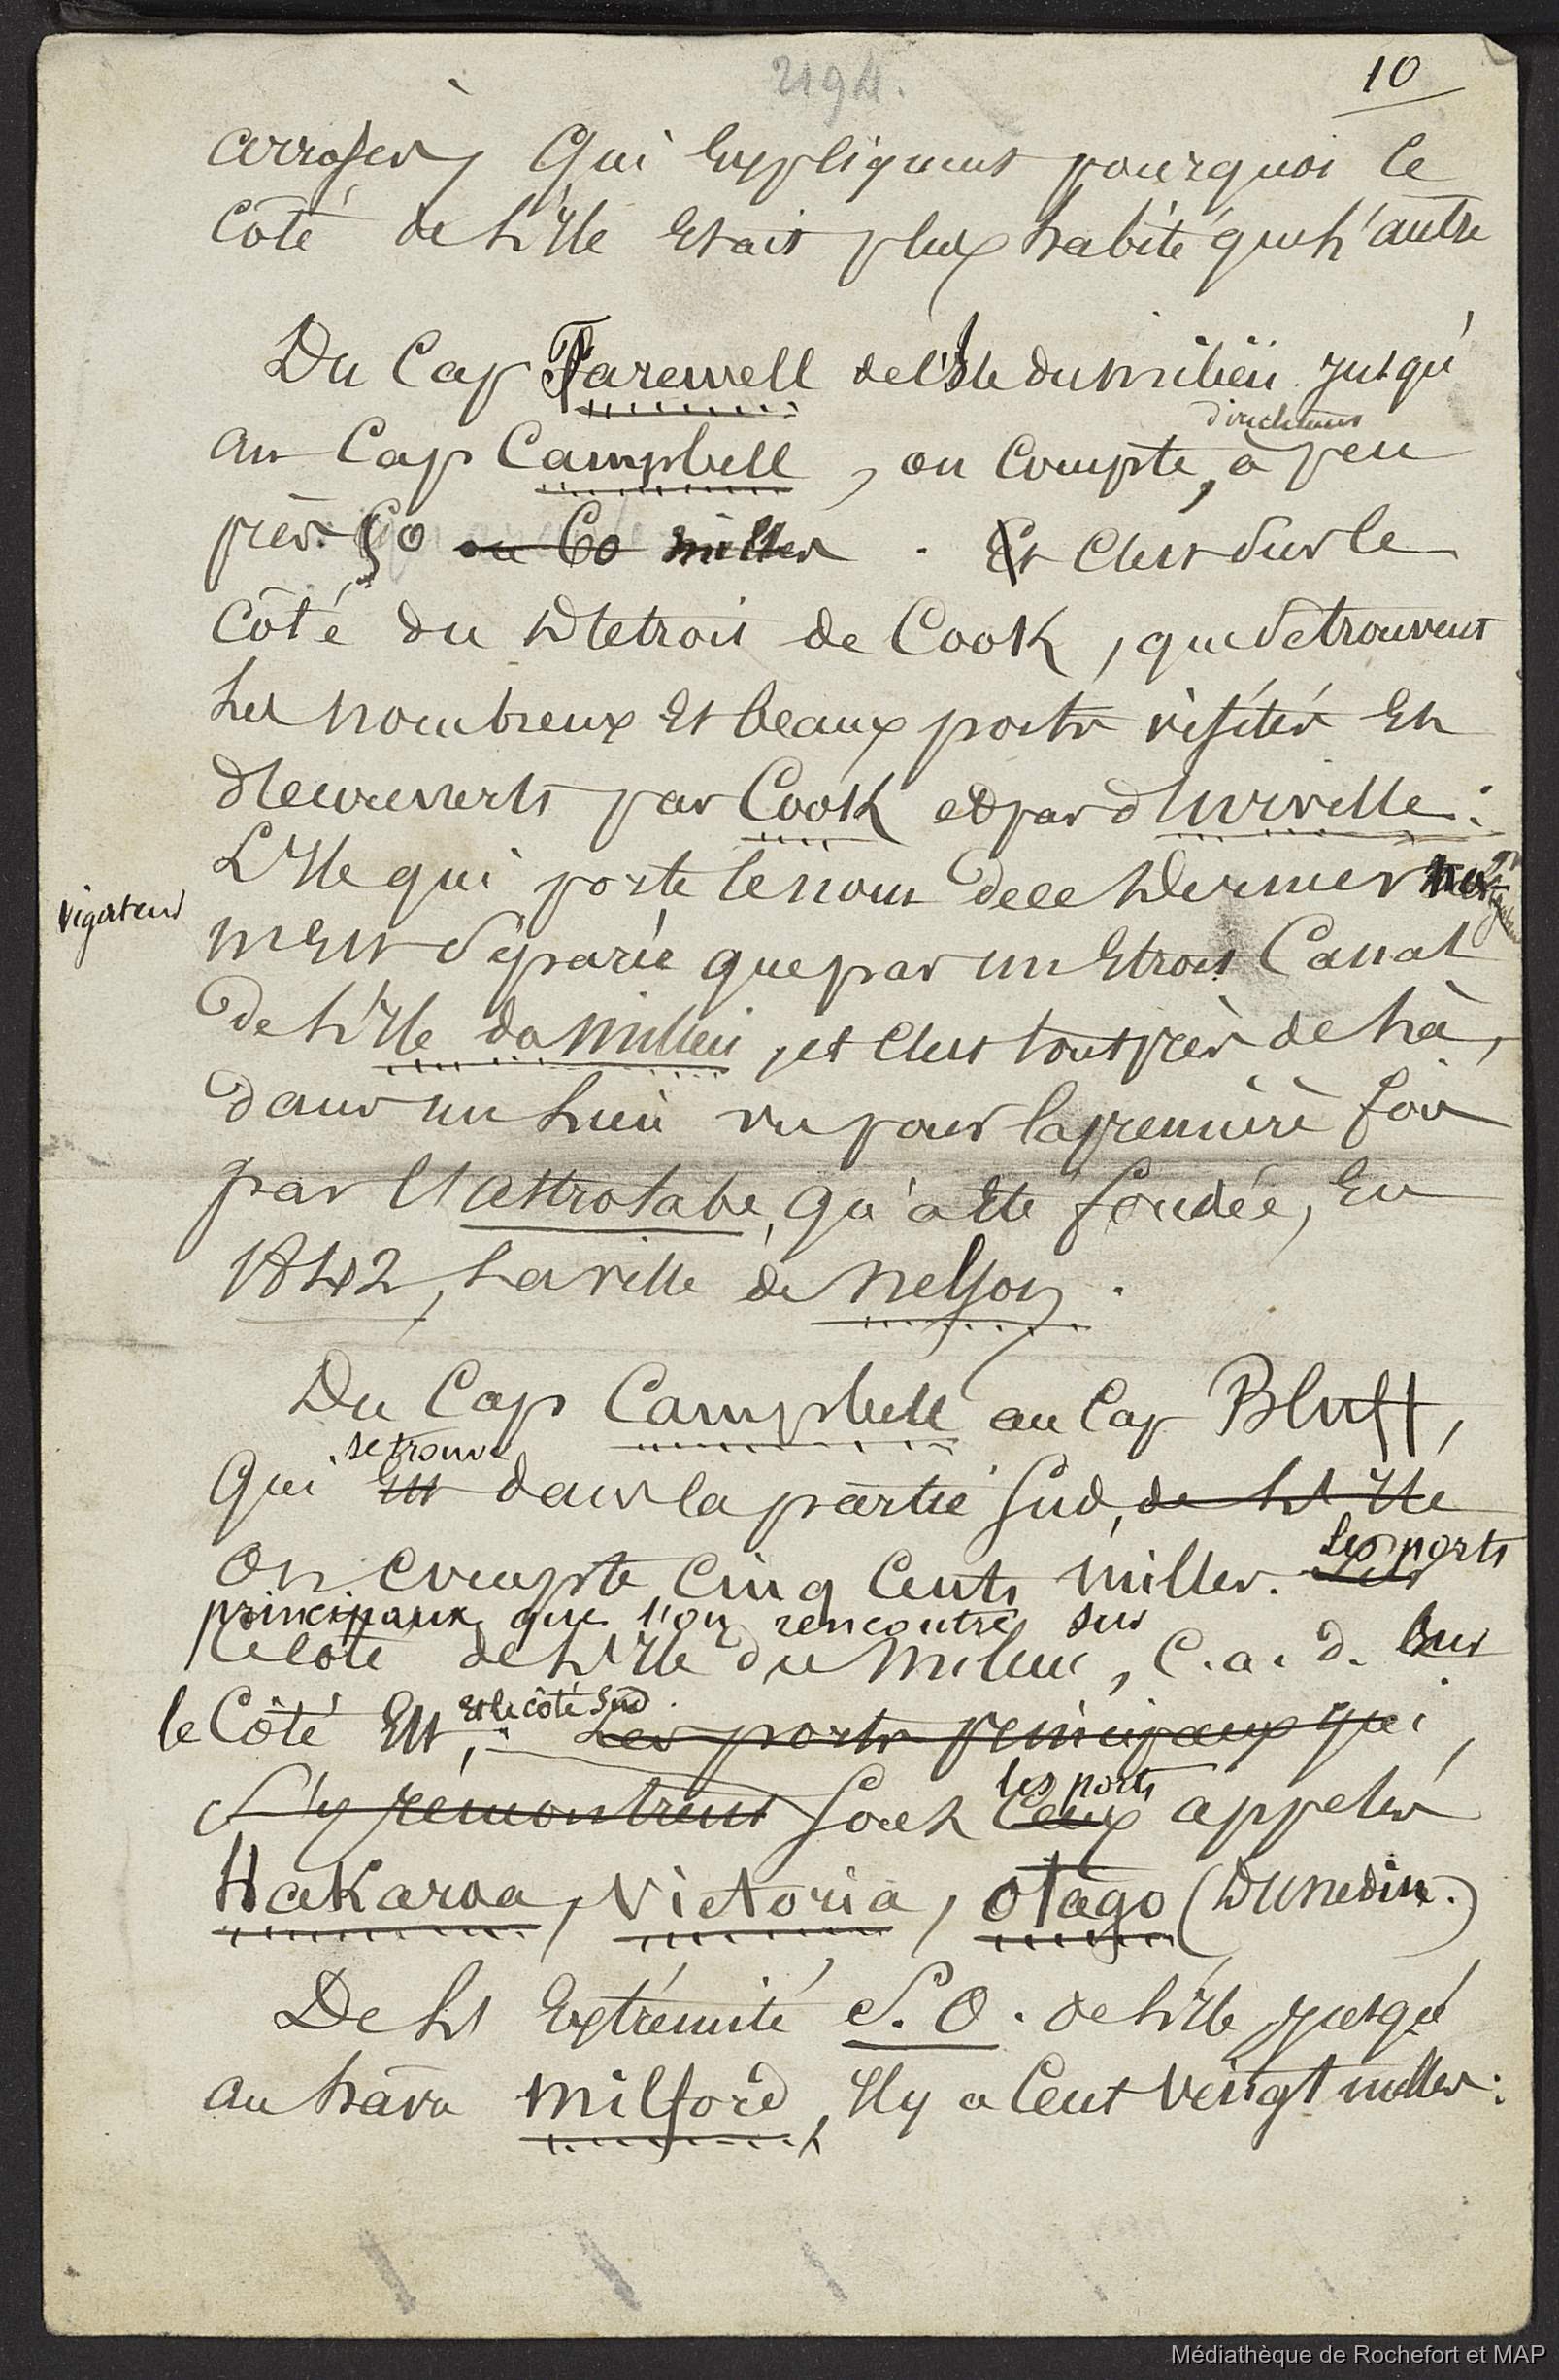 2194.
10
arroser, qui expliquent pourquoi ce
côté de l'Ile etait plus habité que l'autre
Du Cap Farewell de l'Isle du milieu jusqu'
au Cap Campbell, on compte, à peu
directement
près 50 ou 60 milles. Et C'est sur le
côté du Détroit de Cook, que se trouvent
les nombreux et beaux ports visités et
découverts par Cook et par d'Urville:
L'Ile qui porte le nom de ce dernier
vigateur
n'est séparée que par un Etroit Canal
de l'Ile du Milieu, et c'est tout près de là,
dans un lieu vu pour la première fois
par l'Astrolabe, qu'a été fondée, en
1842, la ville de Nelson.
Du Cap Campbell au Cap Bluff,
se trouve
qui est dans la partie Sud, de l'Ile
on compte cinq cents milles. Les ports
principaux que l'on rencontre sur
le côté de l'Ile du Milieu, C.a.d. sur
le Côté Est, et le côté Sud. Les ports principaux qui,
s'y rémontrent sont ceux appelés
les ports
Hakaroa, Victoria, Otago (Dunedin.)
De l'Extrémité S.O. de l'Ile, jusqu'
au hâvre Milford, Il y a Cent vingt milles:
Médiathèque de Rochefort et MAP